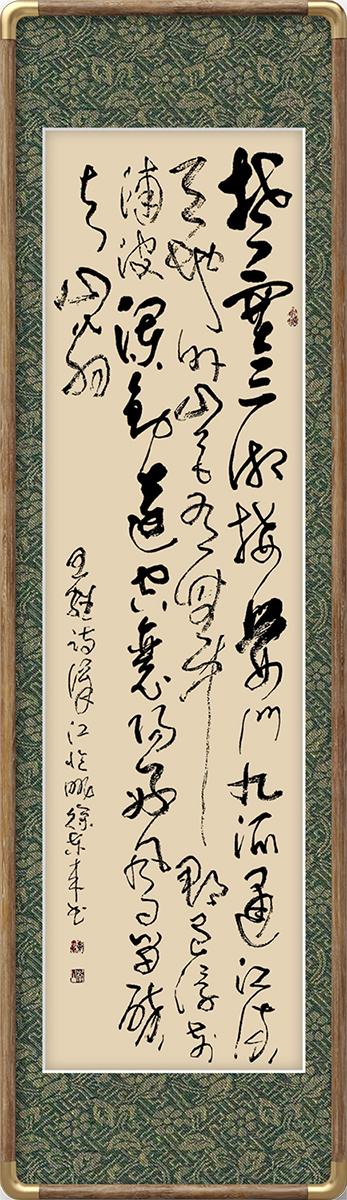 楚塞三湘接荆门九派通江流
天地外山色有无中郡邑浮前
浦波澜动远空襄阳好风日留醉
与山翁
王维诗汉江临眺徐来书